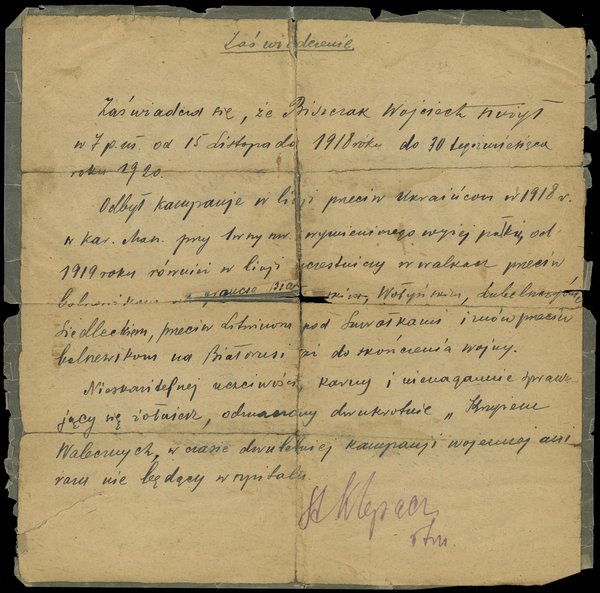 Zaświadczenie
Zaświadcza się, że Biszczak Wojciech służył
w 7 p.uł. od 15 Listopada 1918 roku do 30 tegomiesiąca
roku 1920.
Odbył kampanję w linji przeciw Ukraińcom w 1918 r.
w kar. masz. przy wymienionego wyżej pułku, od
1919 roku również w linji uczestniczy w walkach przeciw
bolszewikom Wołyńskim, Lubelszczyźnie
Siedleckiem, przeciw Litwinom pod Suwałkami i znów przeciw
bolszewikom na Białorusi aż do skończenia wojny.
Nieskazitelnej uczciwości, karny i nienagannie spraw-
jący się żołnierz, odznaczony dwukrotnie „Krzyżem
Walecznych, w czasie dwuletniej kampanji wojennej ani
razu nie będący w szpitalu.
St Klepacz
rtm.